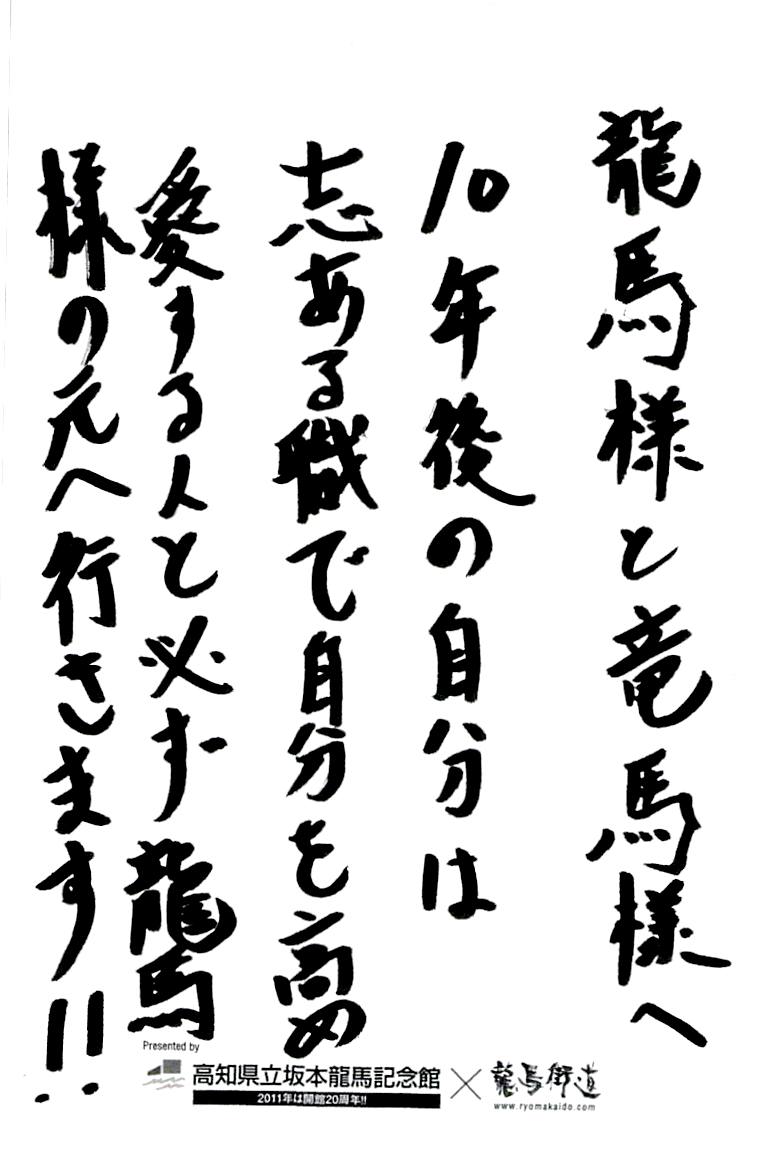 龍馬様と竜馬様へ
10年後の自分は
志ある職で自分を高め
愛する人と必ず龍馬
様の元へ行きます!!
Presented by
高知県立坂本龍馬記念館
2011年は開館20周年!!
×
龍馬街道
www.ryomakaido.com